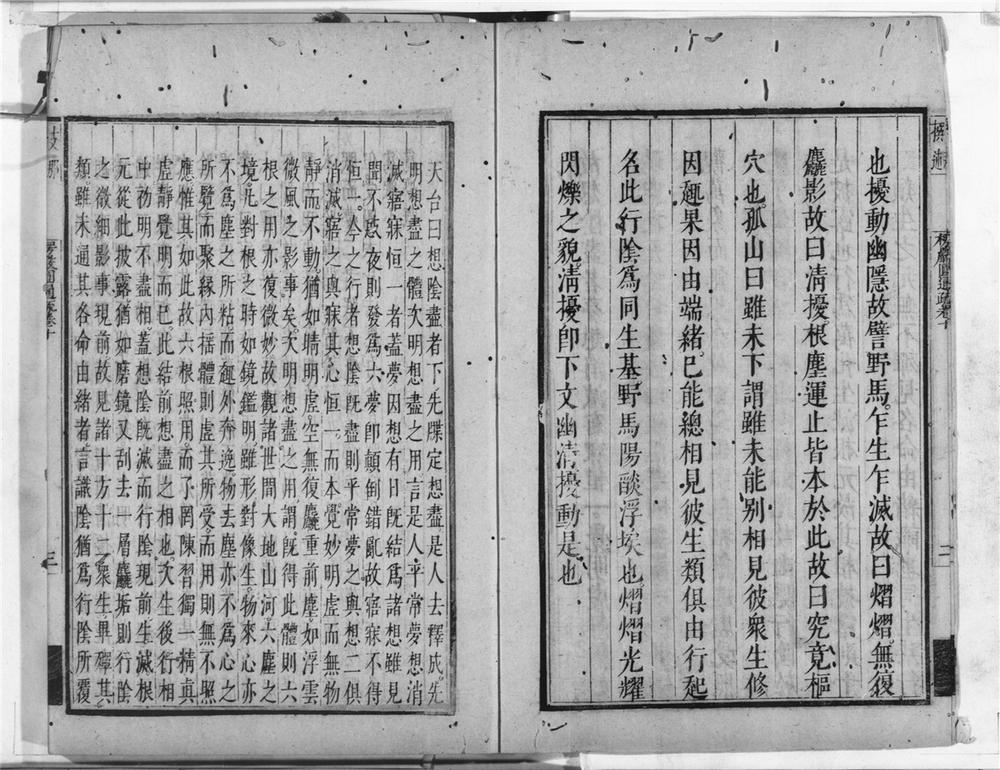 也擾動幽隱故譬野馬乍生乍滅故曰熠熠無復
麤影故曰清擾根塵運止皆本於此故曰究竟樞
穴也孤山曰雖未下謂雖未能別相見彼衆生修
因趣果因由端緒已能總相見彼生類俱由行起
名此行陰爲同生基野馬陽燄浮埃也熠熠光耀
閃爍之貌清擾卽下文幽清擾動是也
天台曰想陰盡者下先牒定想盡是人去釋成先
明想盡之體次明想盡之用言是人平常夢想消
滅寤寐恒一者蓋夢因想有日旣結爲諸想雖見
聞不感夜則發爲六夢卽顛倒錯亂故寤寐不得
恒一今之行者想陰旣盡則平常夢之與想二俱
消滅寤之與寐其心恒一而本覺妙明虛而無物
靜而不動猶如晴明虛空無復麤重前塵如浮雲
微風之影事矣次明想盡之用謂旣得此體則六
根之用亦復微妙故觀諸世間大地山河六塵之
境凡對根之時如鏡鑑明雖形對像生物來心亦
不爲塵之所粘而趣外奔逸物去塵亦不爲心之
所覽而聚緣內搖體則虛其所受而用則無不照
應惟其如此故六根照用而了罔陳習獨一精眞
虛靜覺明而已此結前想盡之相也次生後行相
由初明不盡相蓋想陰旣滅而行陰現前生滅根
元從此披露猶如磨鏡又刮去一層麤垢則行陰
之微細影事現前故見諸十方十二衆生畢殫其
類雖未通其各命由緒者言識陰猶爲行陰所覆
楞嚴圓通疏卷十
楞嚴圓通疏卷十